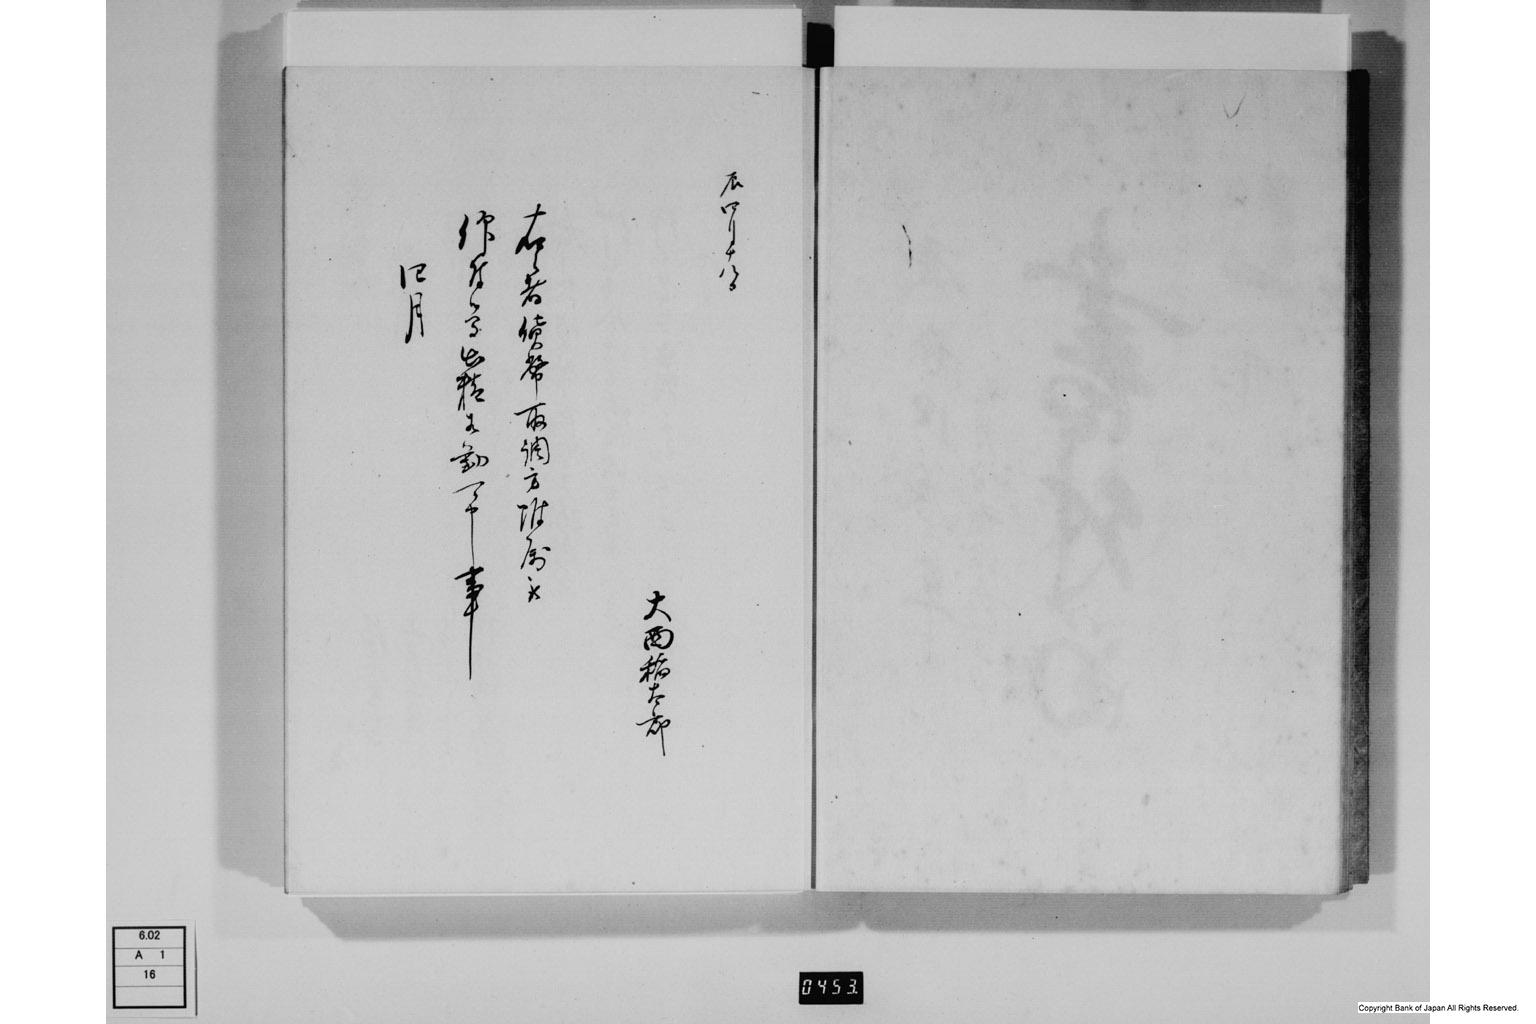 辰四月十八日
大西稲太郎
右者貨幣取調方附属被
仰付候条出精相勤可申事
四月
6.02
A 1
16
0453
Copyright Bank of Japan All Rights Reserved.